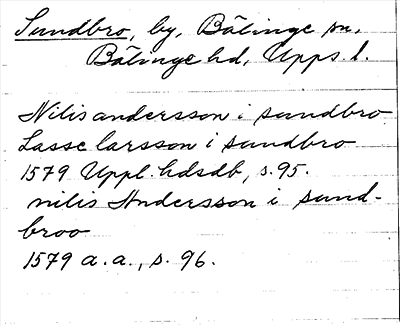 Sundbro, by, Bälinge sn,
Bälinge hd, Upps. l.
Nilis andersson i sundbro
Lasse larsson i sundbro
1579 Uppl. hdsdb, s. 95.
nilis Andersson i sund-
broo
1579 a. a., s. 96.